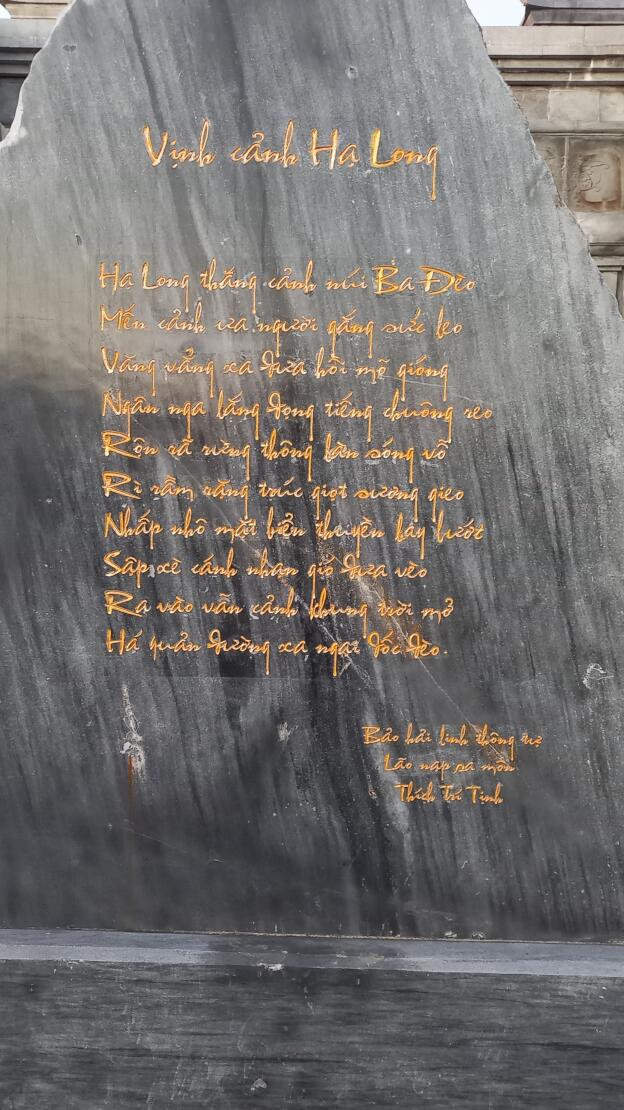 Vịnh cảnh Hạ Long
Hạ Long thắng cảnh núi Ba Đèo
Mến cảnh ưa người gắng sức leo
Văng vẳng xà đưa hồi mõ gióng
Ngân nga lắng đọng tiếng chuông reo
Rộn rã rừng thông làn sóng vỗ
Rì rầm rặng trúc giọt sương gieo
Nhấp nhô mặt biển thuyền bay lướt
Sập xè cánh nhạn gió đưa vèo
Ra vào vẫn cảnh khung trời mở
Há quản đường xa ngại dốc đèo.
Bảo hải linh thông tự
Lão nạp sa môn
Thích Trí Tịnh